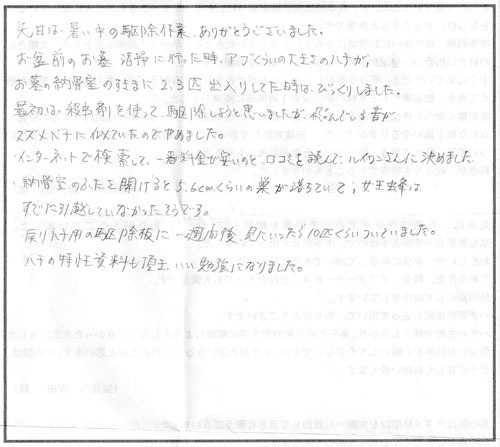 先日は、暑い中の駆除作業、ありがとうございました。
お盆前のお墓 清掃に行った時、アブくらいの大きさのハチが、
お墓の納骨室のすきまに2.3匹出入りしてた時は、びっくりしました。
最初は、殺虫剤を使って、駆除しようと思いましたが、飛んでいる音が
スズメバチに似ていたのでやめました。
インターネットで検索して、一番料金が安いのと、口コミを読んで、ルイワンさんに決めました。
納骨室のふたを開けると5.6cmくらいの巣が落ちていて、女王蜂は、
すでに引越していなかったそうです。
戻りバチ用の駆除板に一週間後 見にいったら10匹くらいついていました。
ハチの特性資料も頂き、いい勉強になりました。